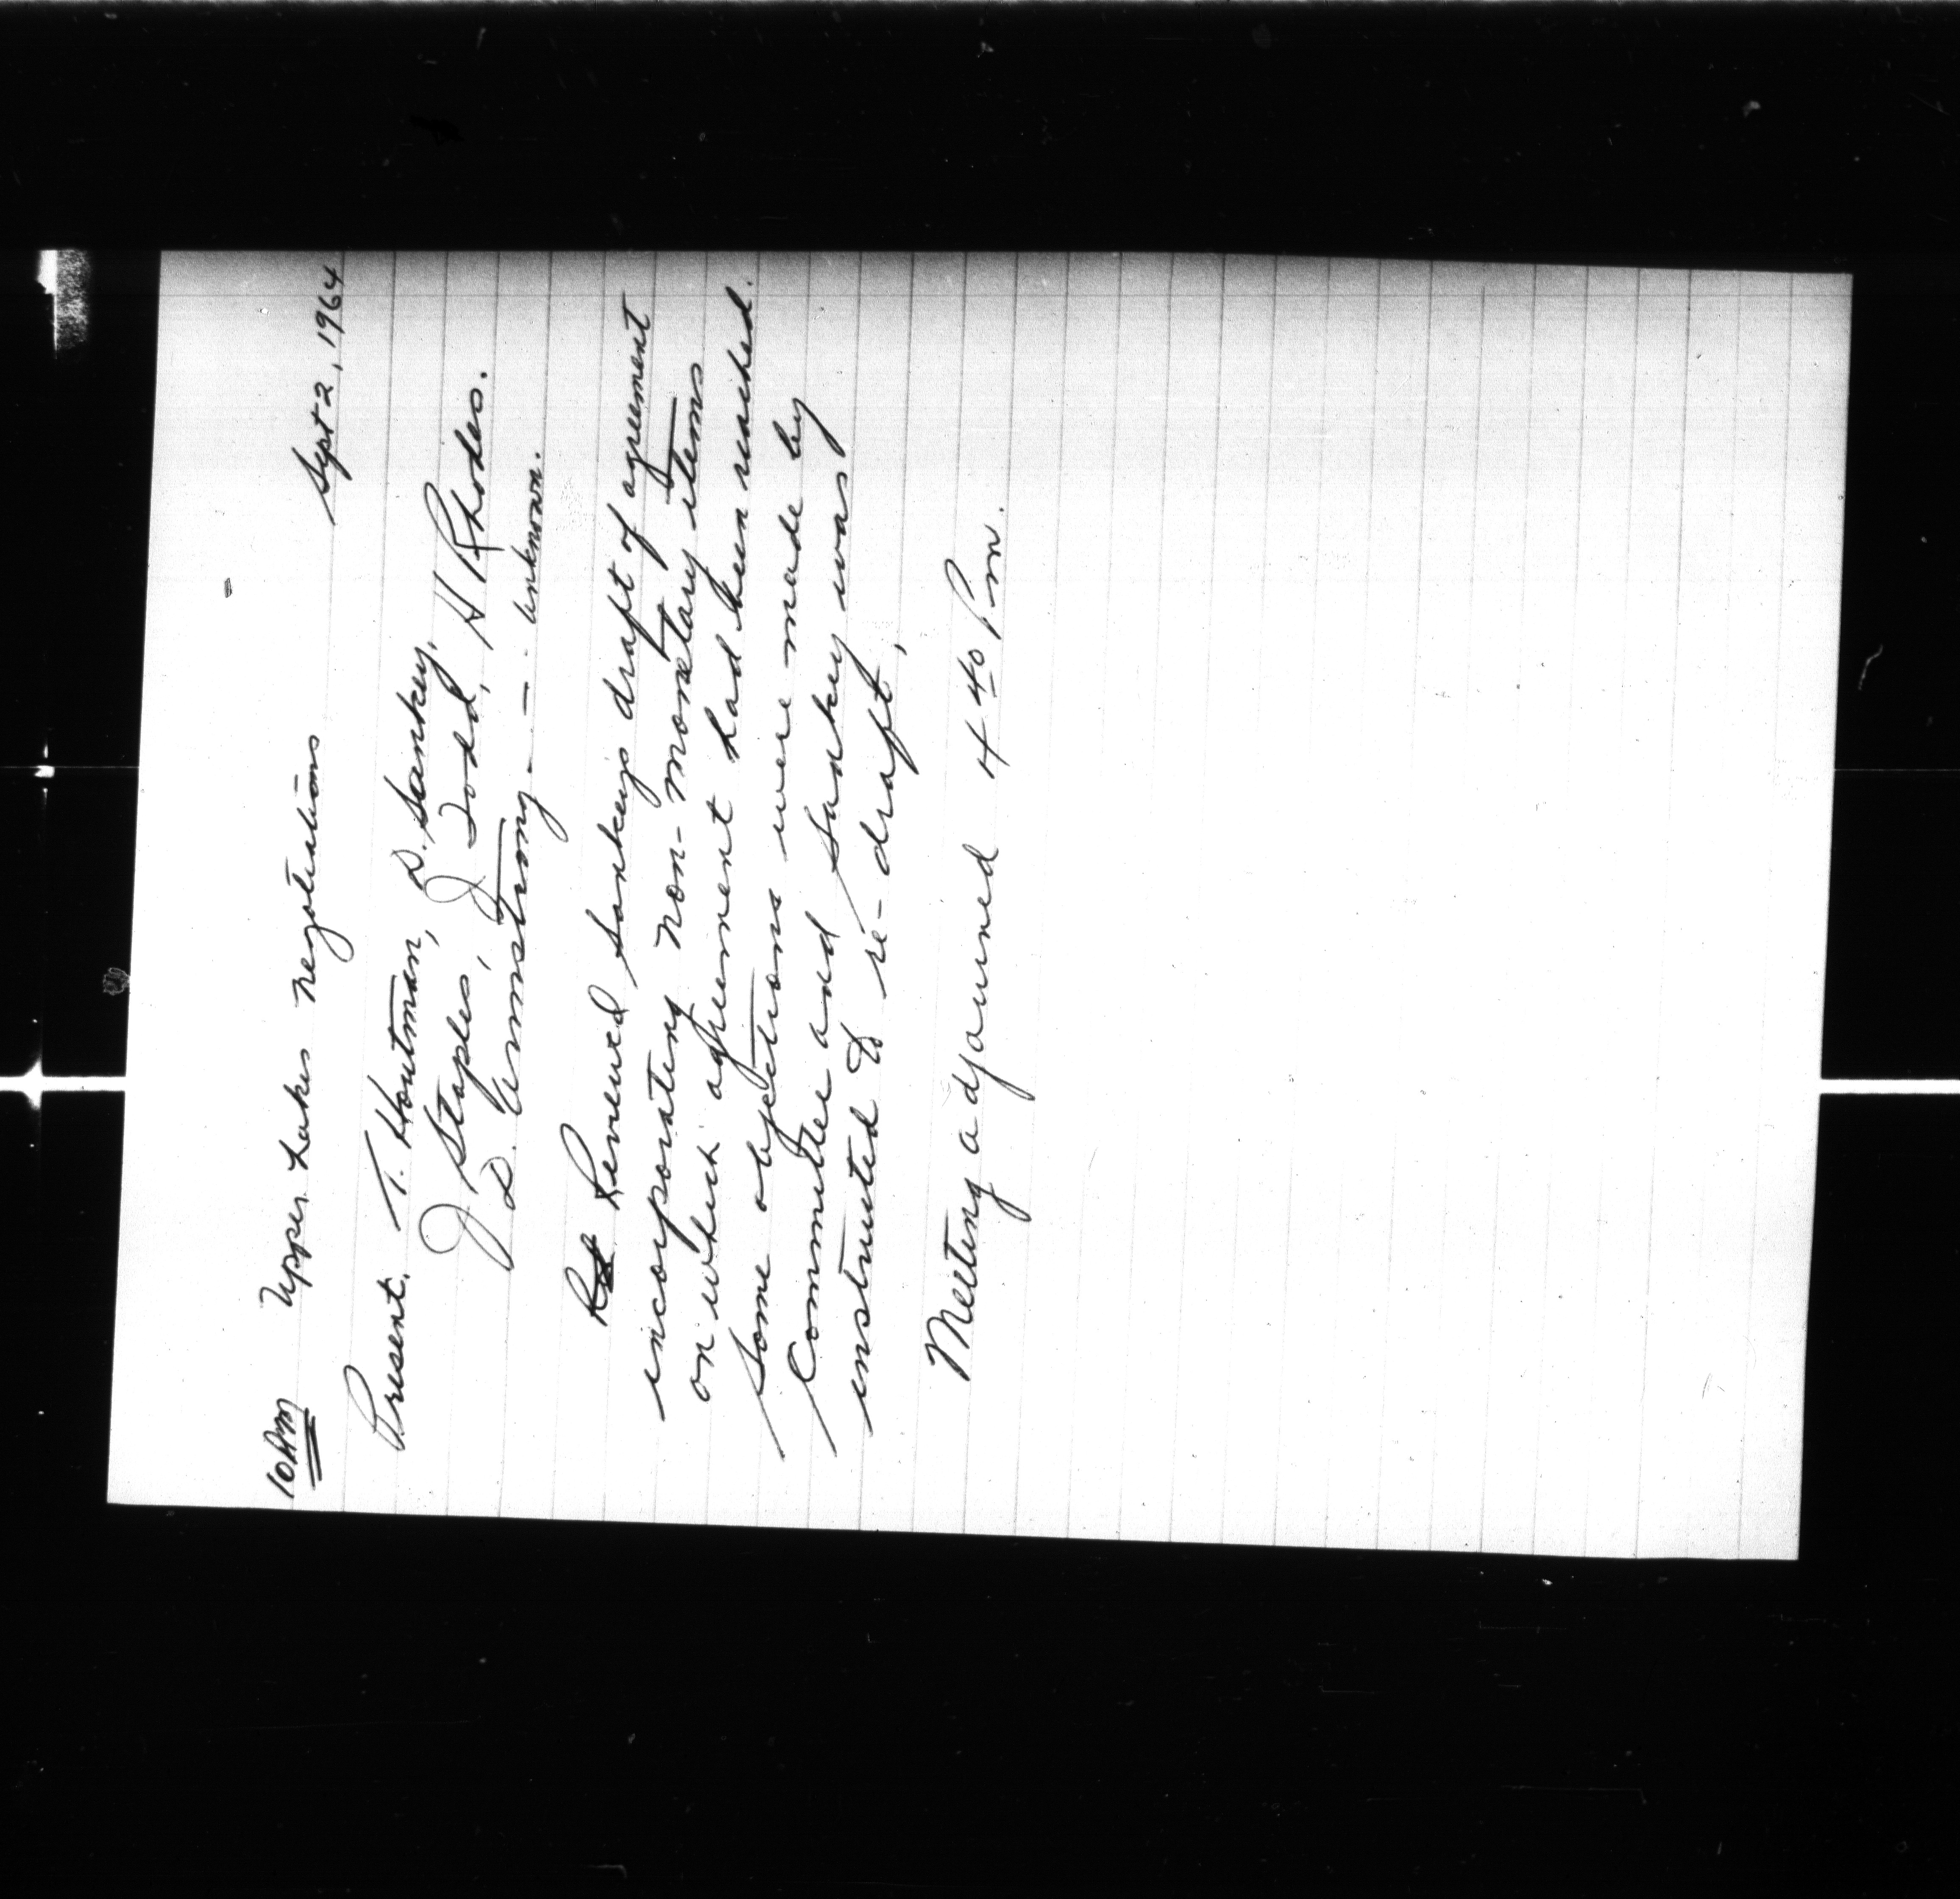 10AM Upper Lakes negotiations
Sept 2, 1964
Present. T. Houtman, D. Sankey,
J Staples, J Todd, H Rhodes.
D. Armstrong - - - unknown.
Revewed Sankeys draft of agreement
incorporating non-monetary items
on which agreement had been reached.
Some objections were made by
Committee and Sankey was
instructed to re-draft.
Meeting adjourned 4 40 Pm.